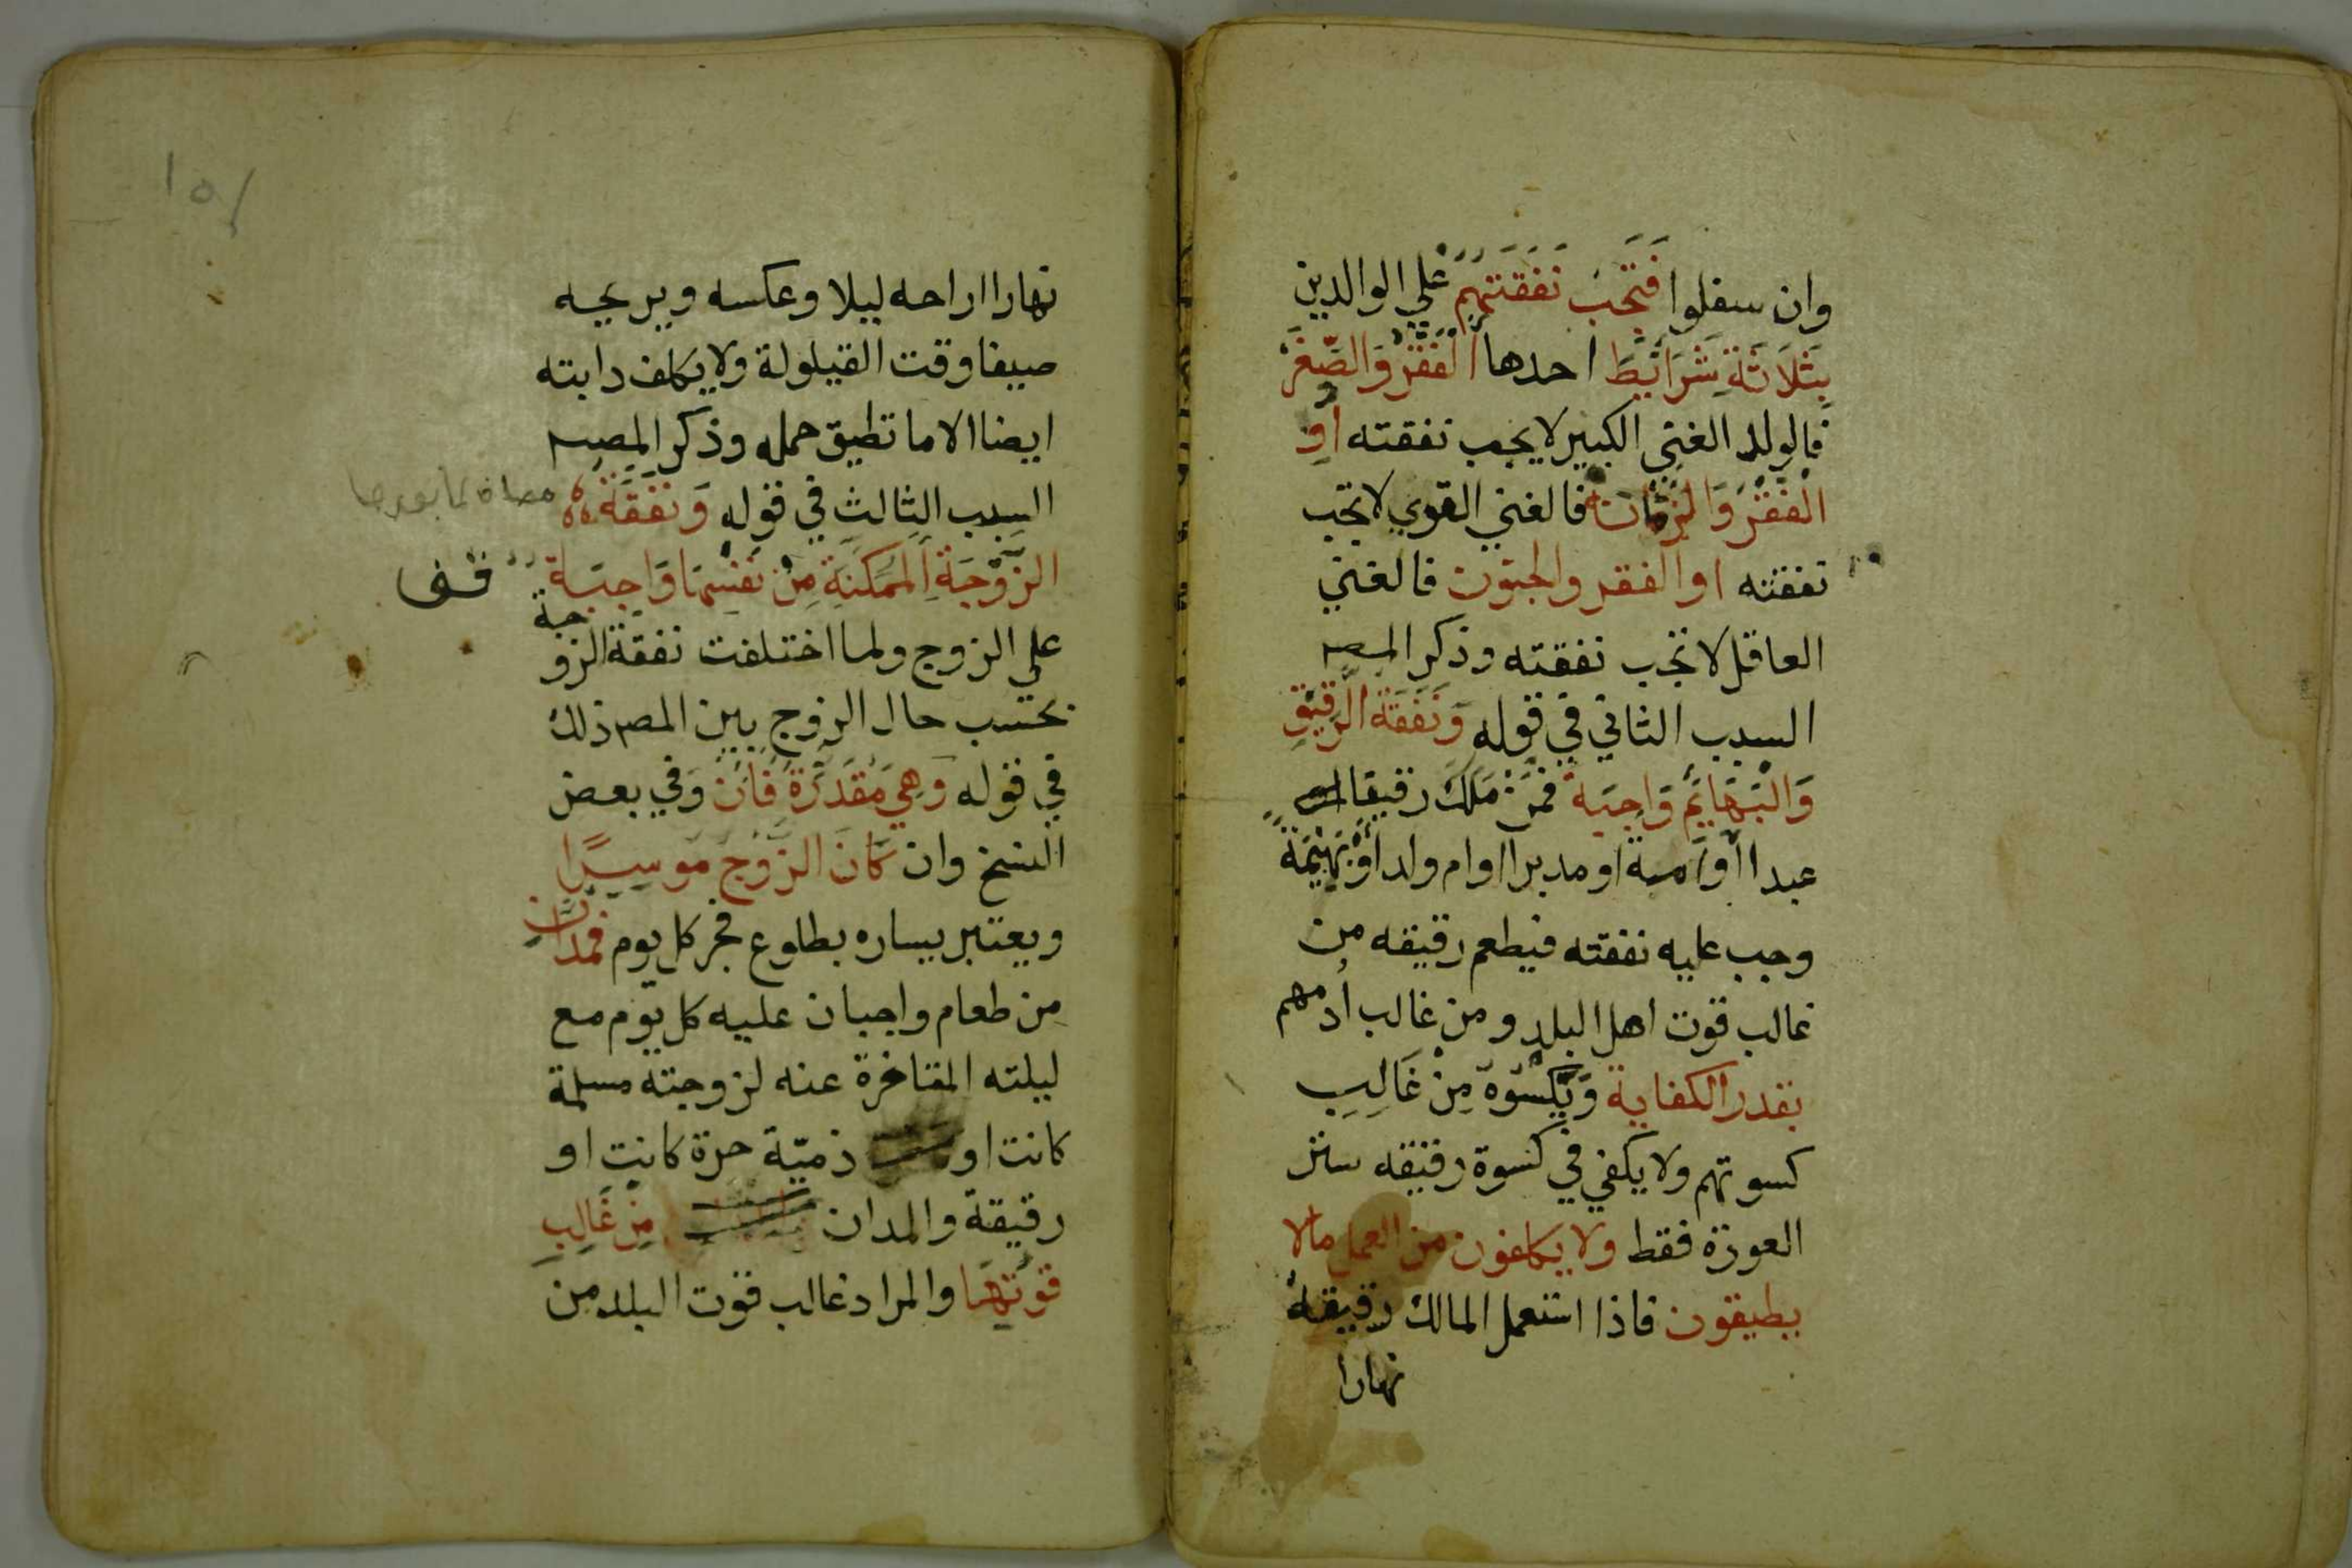 وان سفلوا فَتَجِبُ نَفَقَتُهُمْ علي الوالدين
بِثَلَاثَةِ شَرَائِطَ احدها الْفَقْرُ وَالصِّغَرُ
فالولد الغني الكبير لا يجب نفقته أَوِ
الْفَقْرُ وَالزَّمَانَةُ فالغني القوي لا تجب
نفقته او الفقر والجنون فالغني
العاقل لا تجب نفقته وذكر المصـ
السبب الثاني في قوله وَنَفَقَةُ الرَّقِيقِ
وَالْبَهَايِمِ وَاجِبَةٌ فمن ملك رقيقا
عبدا او امة او مدبرا او ام ولد او بَهِيْمَةً
وجب عليه نفقته فيطعم رقيقه من
غالب قوت اهل البلد ومن غالب أدمهم
بقدر الكفاية وَيَكْسُوهُ مِنْ غَالِبِ
كسوتهم ولا يكفي في كسوة رقيقه ستر
العورة فقط ولا يكلفون من العمل مالا
يطيقون فاذا استعمل المالك رقيقه
نهارا
١٥١
نهارا اراحه ليلا وعكسه ويريحه
صيفا وقت القيلولة ولا يكلف دابته
ايضا الا ما تطيق حمله وذكر المصـ
السبب الثالث في قوله وَنَفَقَةُ
الزَّوْجَةِ الْمُمَكِّنَةِ مِنْ نَفْسِهَا وَاجِبَةٌ
علي الزوج ولما اختلفت نفقة الزوجة
بحسب حال الزوج بين المصـ ذلك
في قوله وَهِيَ مُقَدَّرَةٌ فَاِنْ وفي بعض
النسخ وان كَانَ الزَّوْجُ مُوسِيرًا
ويعتبر يساره بطلوع فجر كل يوم فَمُدَّانِ
من طعام واجبان عليه كل يوم مع
ليلته المتاخرة عنه لزوجته مسلمة
كانت او ذميّة حرة كانت او
رقيقة والمدان مِنْ غَالِبِ
قُوْتِهَا والمراد غالب قوت البلد من